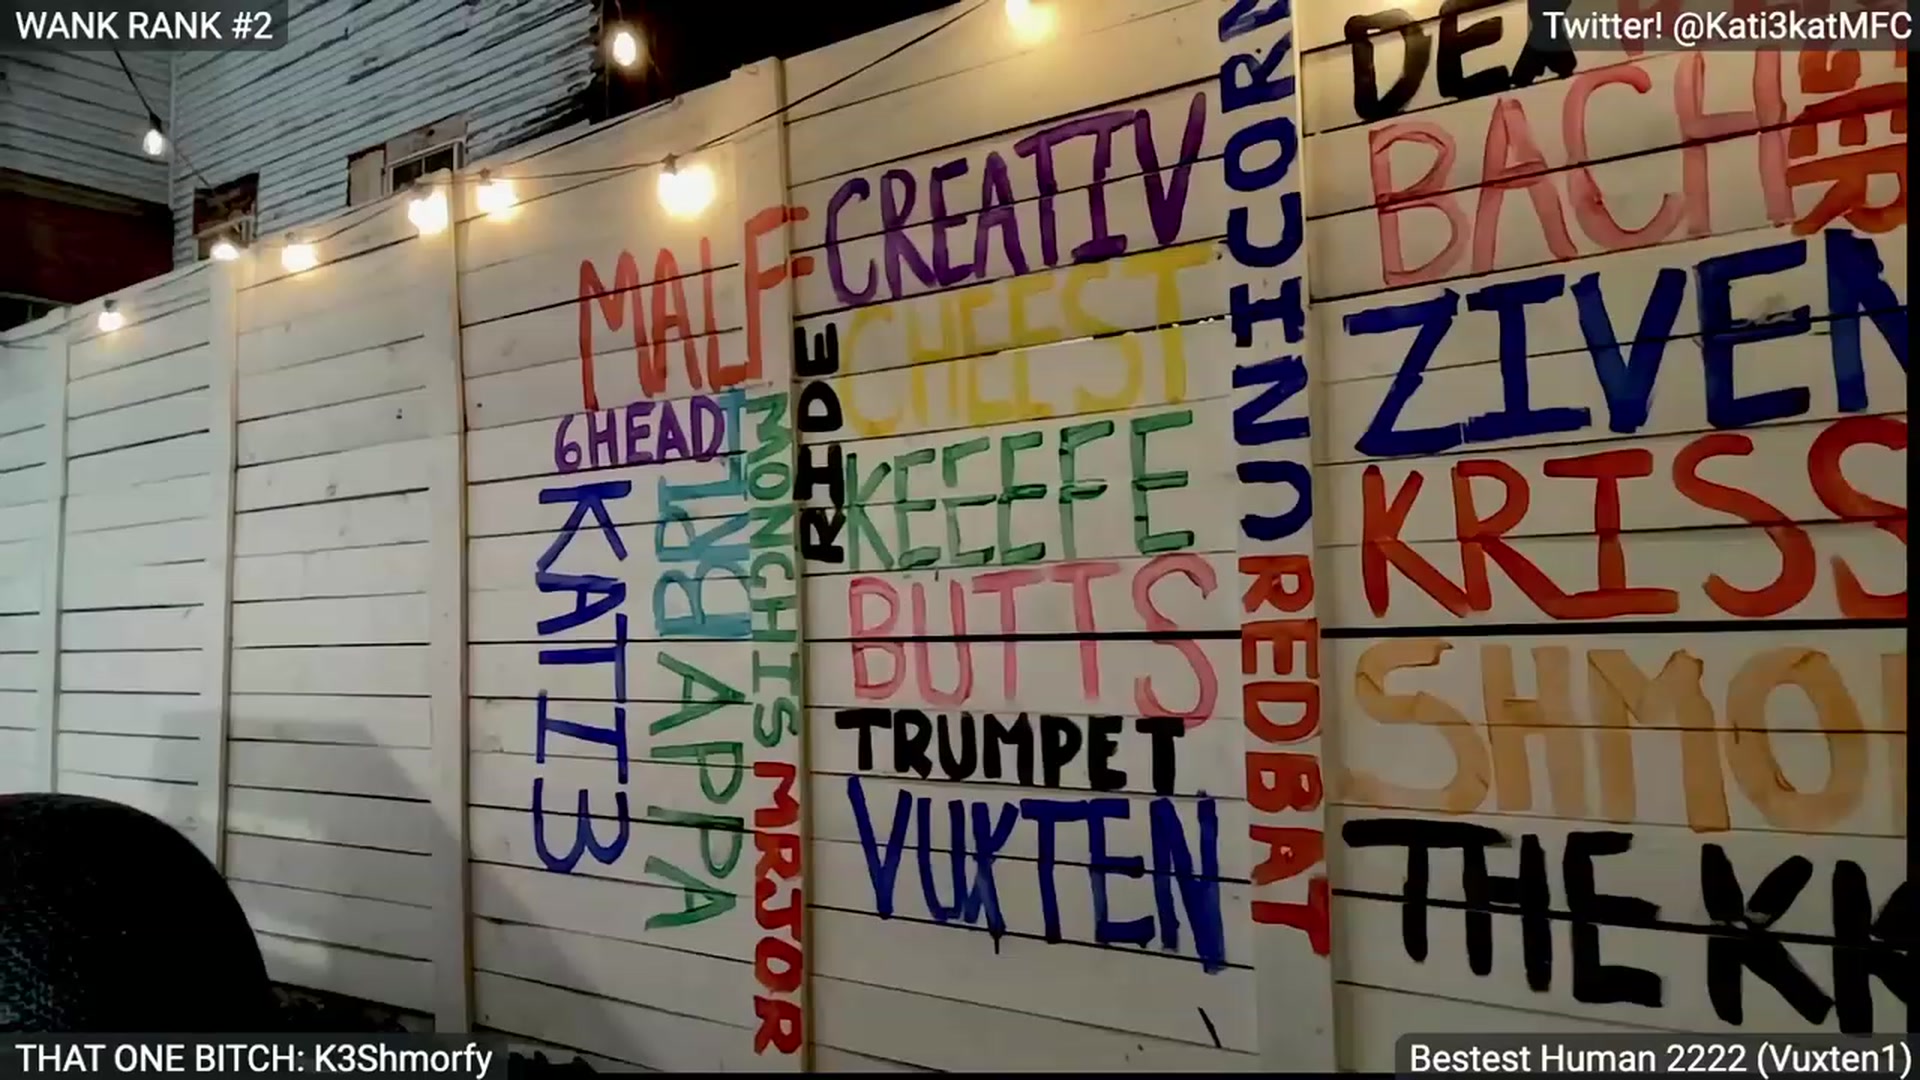 WANK RANK #2
Twitter! @Kati3katMFC
MALF
6HEAD
KATI3
APPA
MONGHIS
MRJTOR
RIDE
CREATIV
CHEEST
KEEEFE
BUTTS
TRUMPET
VUXTEN
UNICORN
REDBAT
BACH
ZIVEN
KRISS
SHMO
THE KK
THAT ONE BITCH: K3Shmorfy
Bestest Human 2222 (Vuxten1)